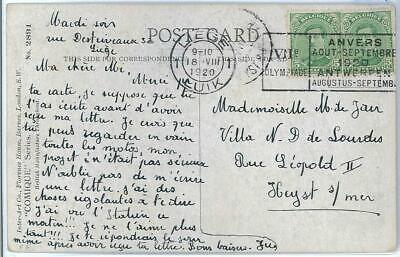 Mardi soir
rue Destriveaux 32
Liège
POST CARD
THIS SIDE FOR
Ma chère Mi
Merci de
ta carte, je suppose que tu
as reçu ma lettre. Je crois que
tu peux regarder en vain
toutes les motos, mon
projet n'était pas sérieux
N'oublie pas de m'écrire
une lettre, j'ai des
choses rigolantes à te dire
J'ai vu l'Italien ce
matin!!! Je ne l'aime plus
tant!!! Je te répondrais le soir
même après avoir reçu ta lettre. Bons baisers.
No. 2891
"COMIQUE" Series.
Inter-Art Co., Florence House, Barnes, London, S.W.
British Manufacture
LIEGE
9-10
18 VIII
1920
LUIK
VIIe
OLYMPIADE
ANVERS
AOUT-SEPTEMBRE
1920
ANTWERPEN
AUGUSTUS-SEPTEMB
Mademoiselle M. de Jaer
Villa N. D. de Lourdes
Rue Léopold II
Heyst s/mer